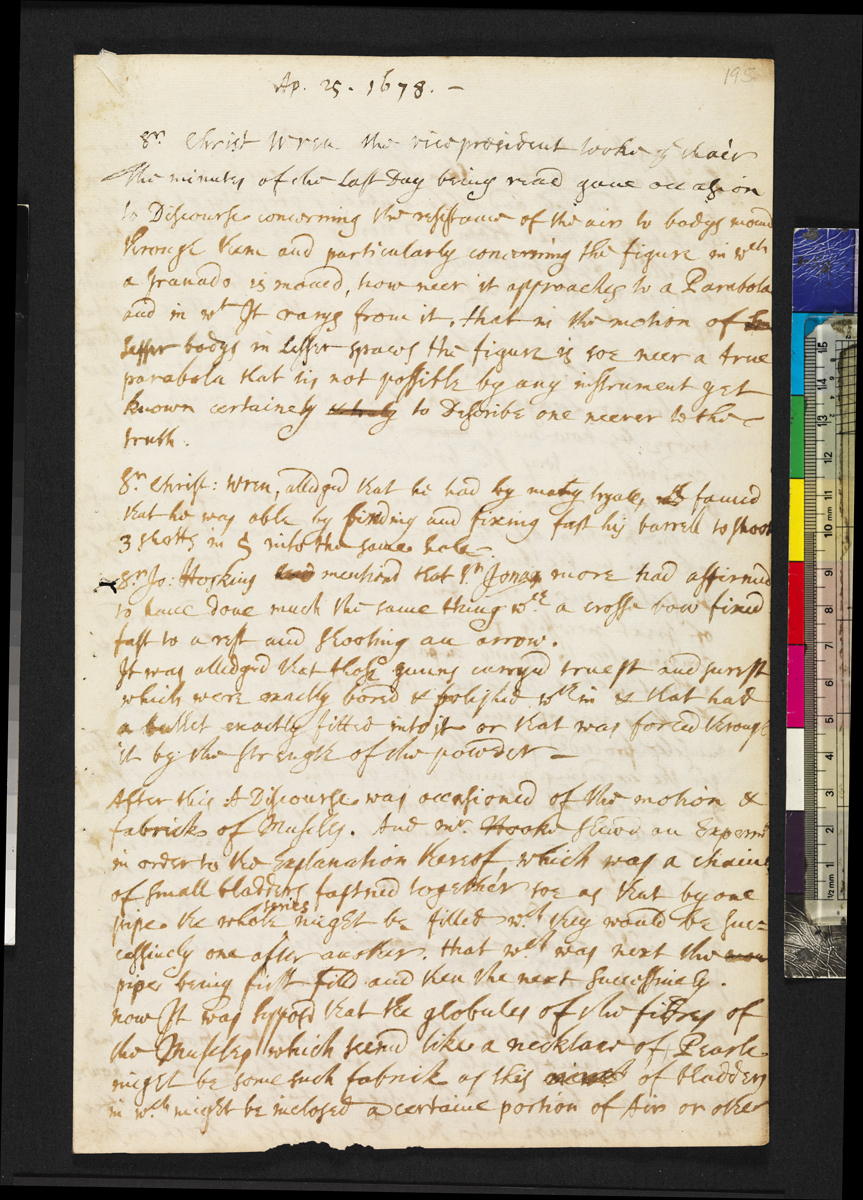 195
Ap. 25. 1678. —
Sr. Christ Wren the vicepresident tooke ye chair
The minutes of the Last Day being read gaue occasion
to Discourse concerning the resistance of the air to bodys moued
through them and particularly concerning the figure in wch
a Granado is moued, how neer it approaches to a Parabola
and in wt It varys from it. that in the motion of
lesser bodys in Lesser spaces the figure is soe neer a true
parabola that tis not possible by any instrument yet
known certainely & truly to Describe one neerer to the
truth.
Sr. Christ: Wren, alledged that he had by many tryals, found
that he was able by finding and fixing fast his barrell to shoot
3 shotts in 5 into the same hole.
Sr. Jo: Hoskins had mentiond that Sr. Jonas more had affirmed
to haue done much the same thing wth a crosse bow fixed
fast to a rest and shooting an arrow.
It was alledged that those gunns carryd truest and surest
which were exactly bored & polished wthin & that had
a bullet exactly fitted into it or that was forced through
it by the strength of the powder —
After this A Discourse was occasioned of the motion &
fabrick of Muscles. And mr. Hooke shewd an Experimt
in order to the Explanation thereof, which was a chaine
of small bladders fastned together soe as that by one
pipe the whole series might be filled wch they would be suc-
cessiuely one after another. that wch was next the
pipe being first filld and then the next successiuely.
now It was supposd that the globules of the fibres of
the Muscles which seemd like a necklace of Pearle
might be some such fabrick as this of bladders
in wch might be inclosed a certaine portion of Air or other